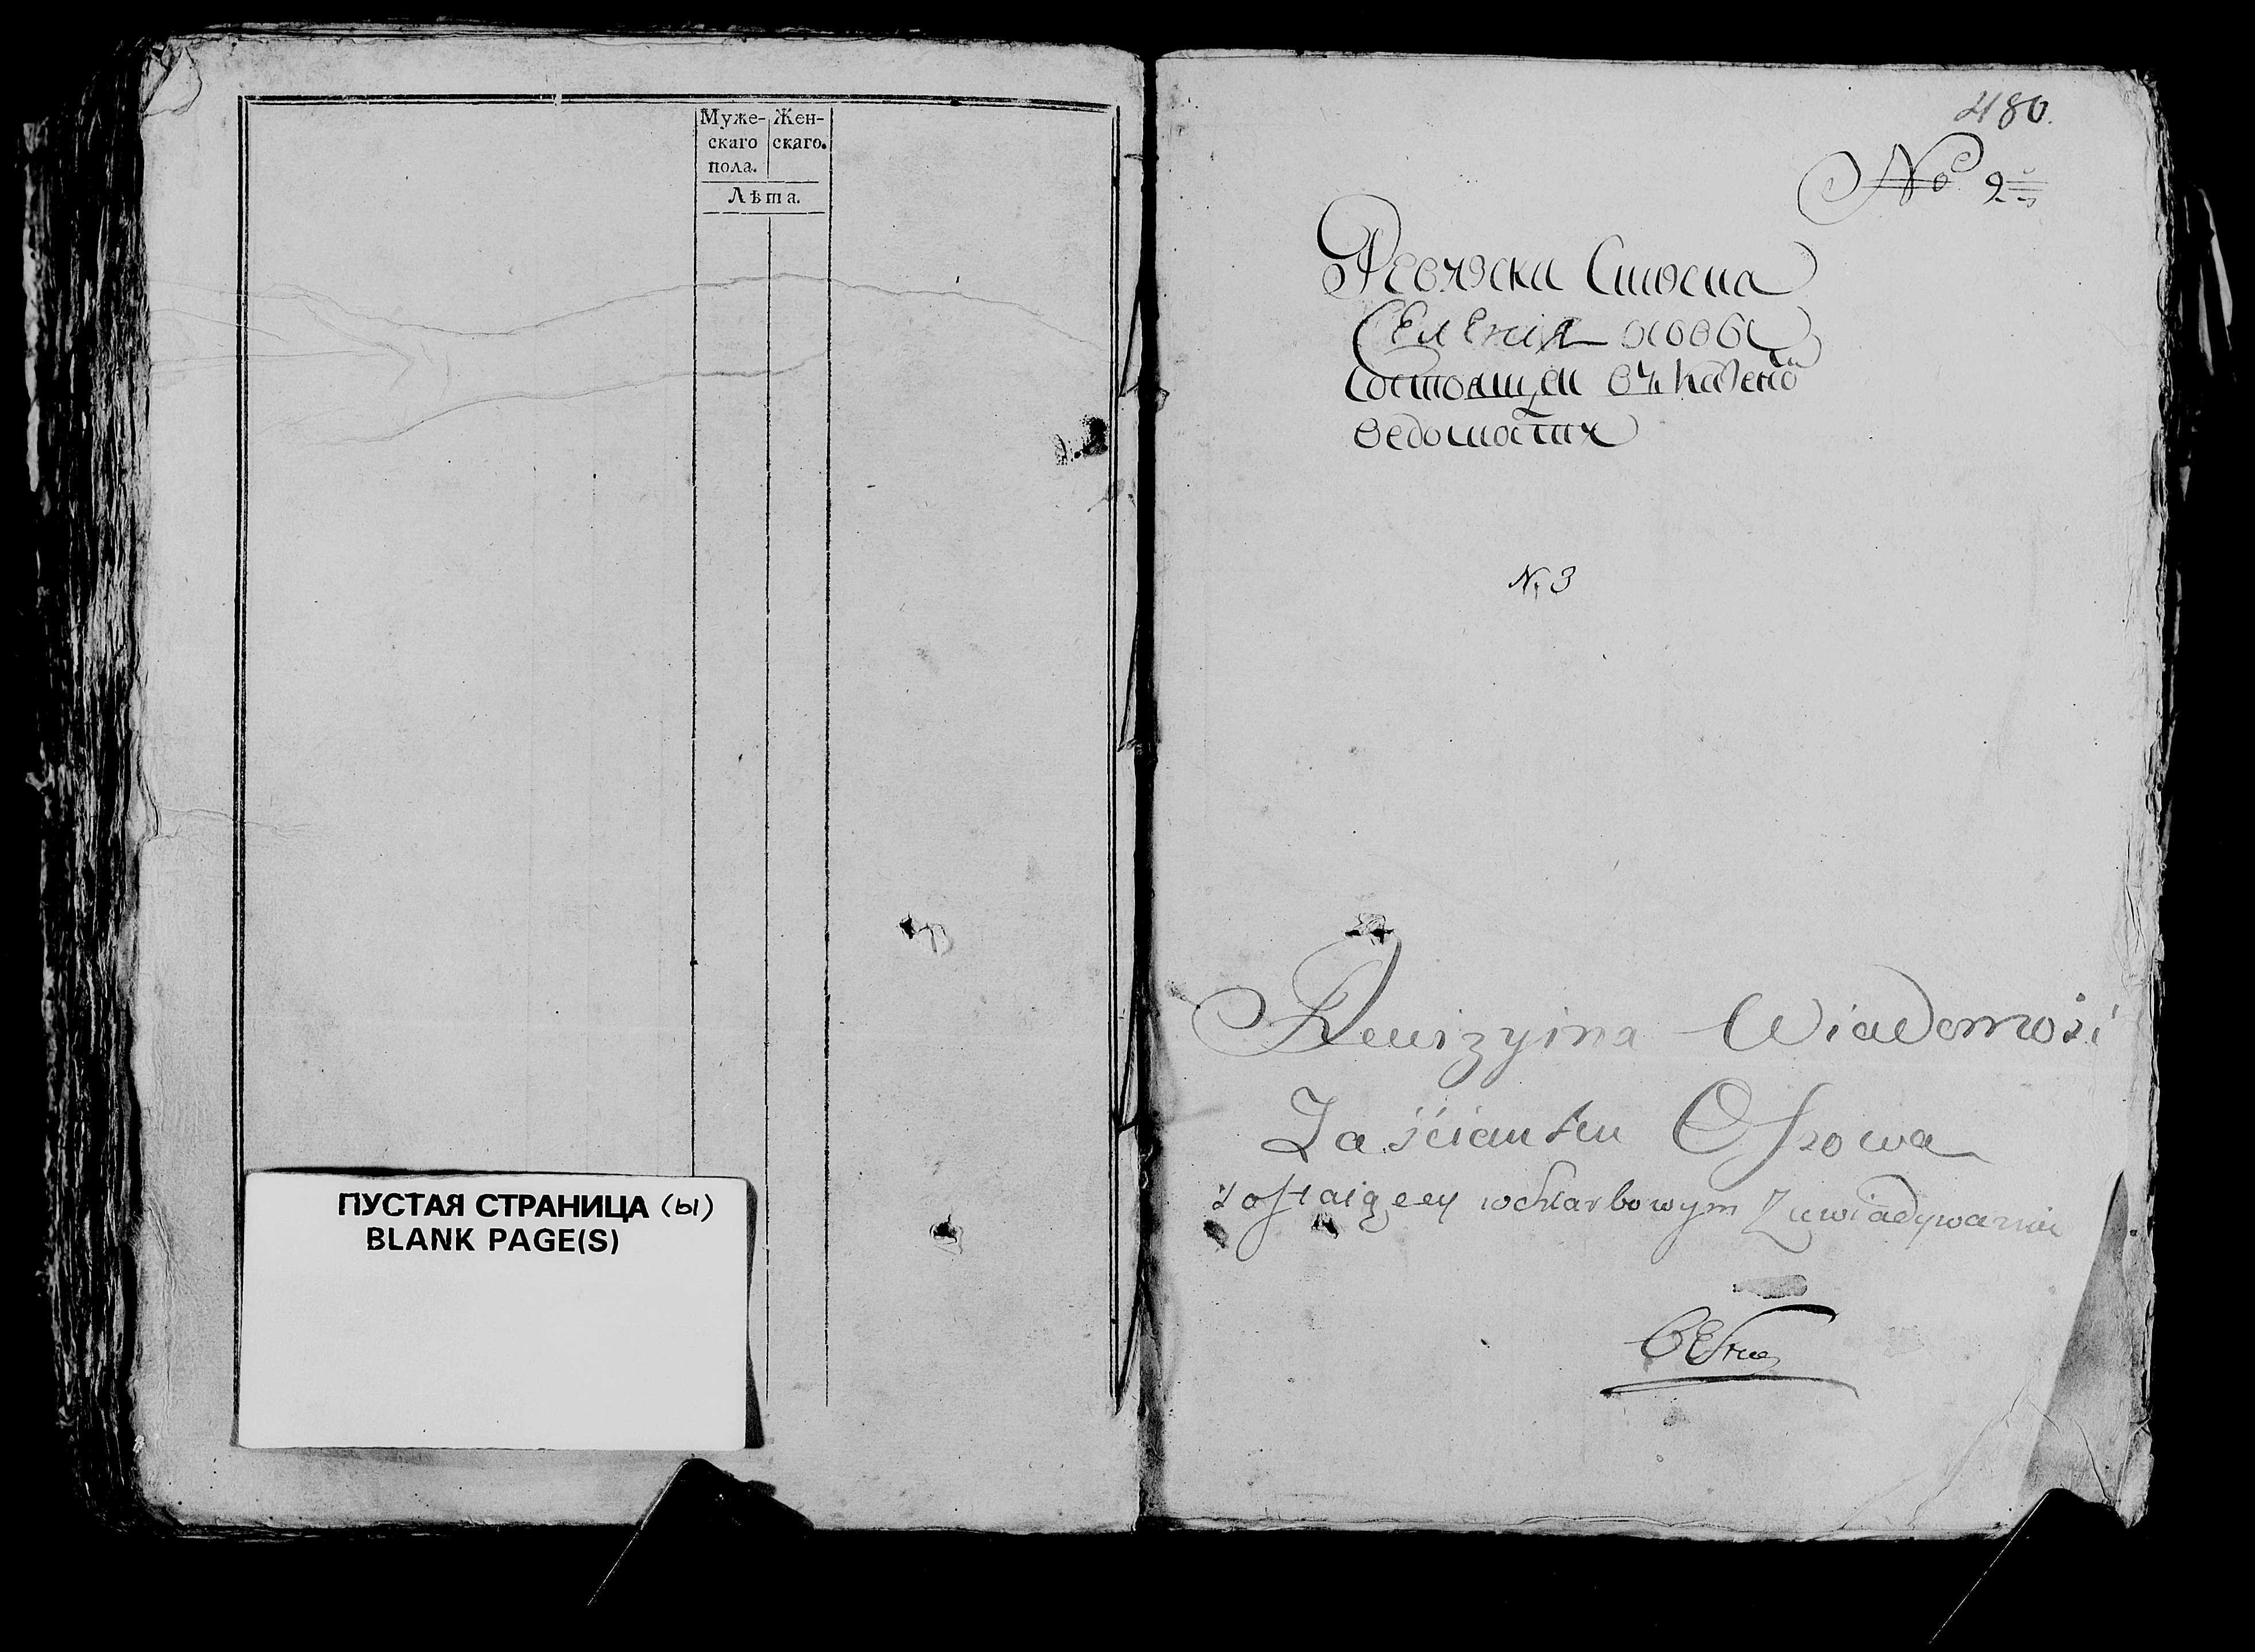 Муже-
скаго
пола.
Жен-
скаго.
Лѣта.
ПУСТАЯ СТРАНИЦА (ы)
BLANK PAGE(S)
480.
No 9
Селенія
Состоящеи въ казено
ведомостях
N. 3
Rewizyina Wiadomość
Zaścianku Osowa
zostaiącey w skarbowym Zawiadywaniu